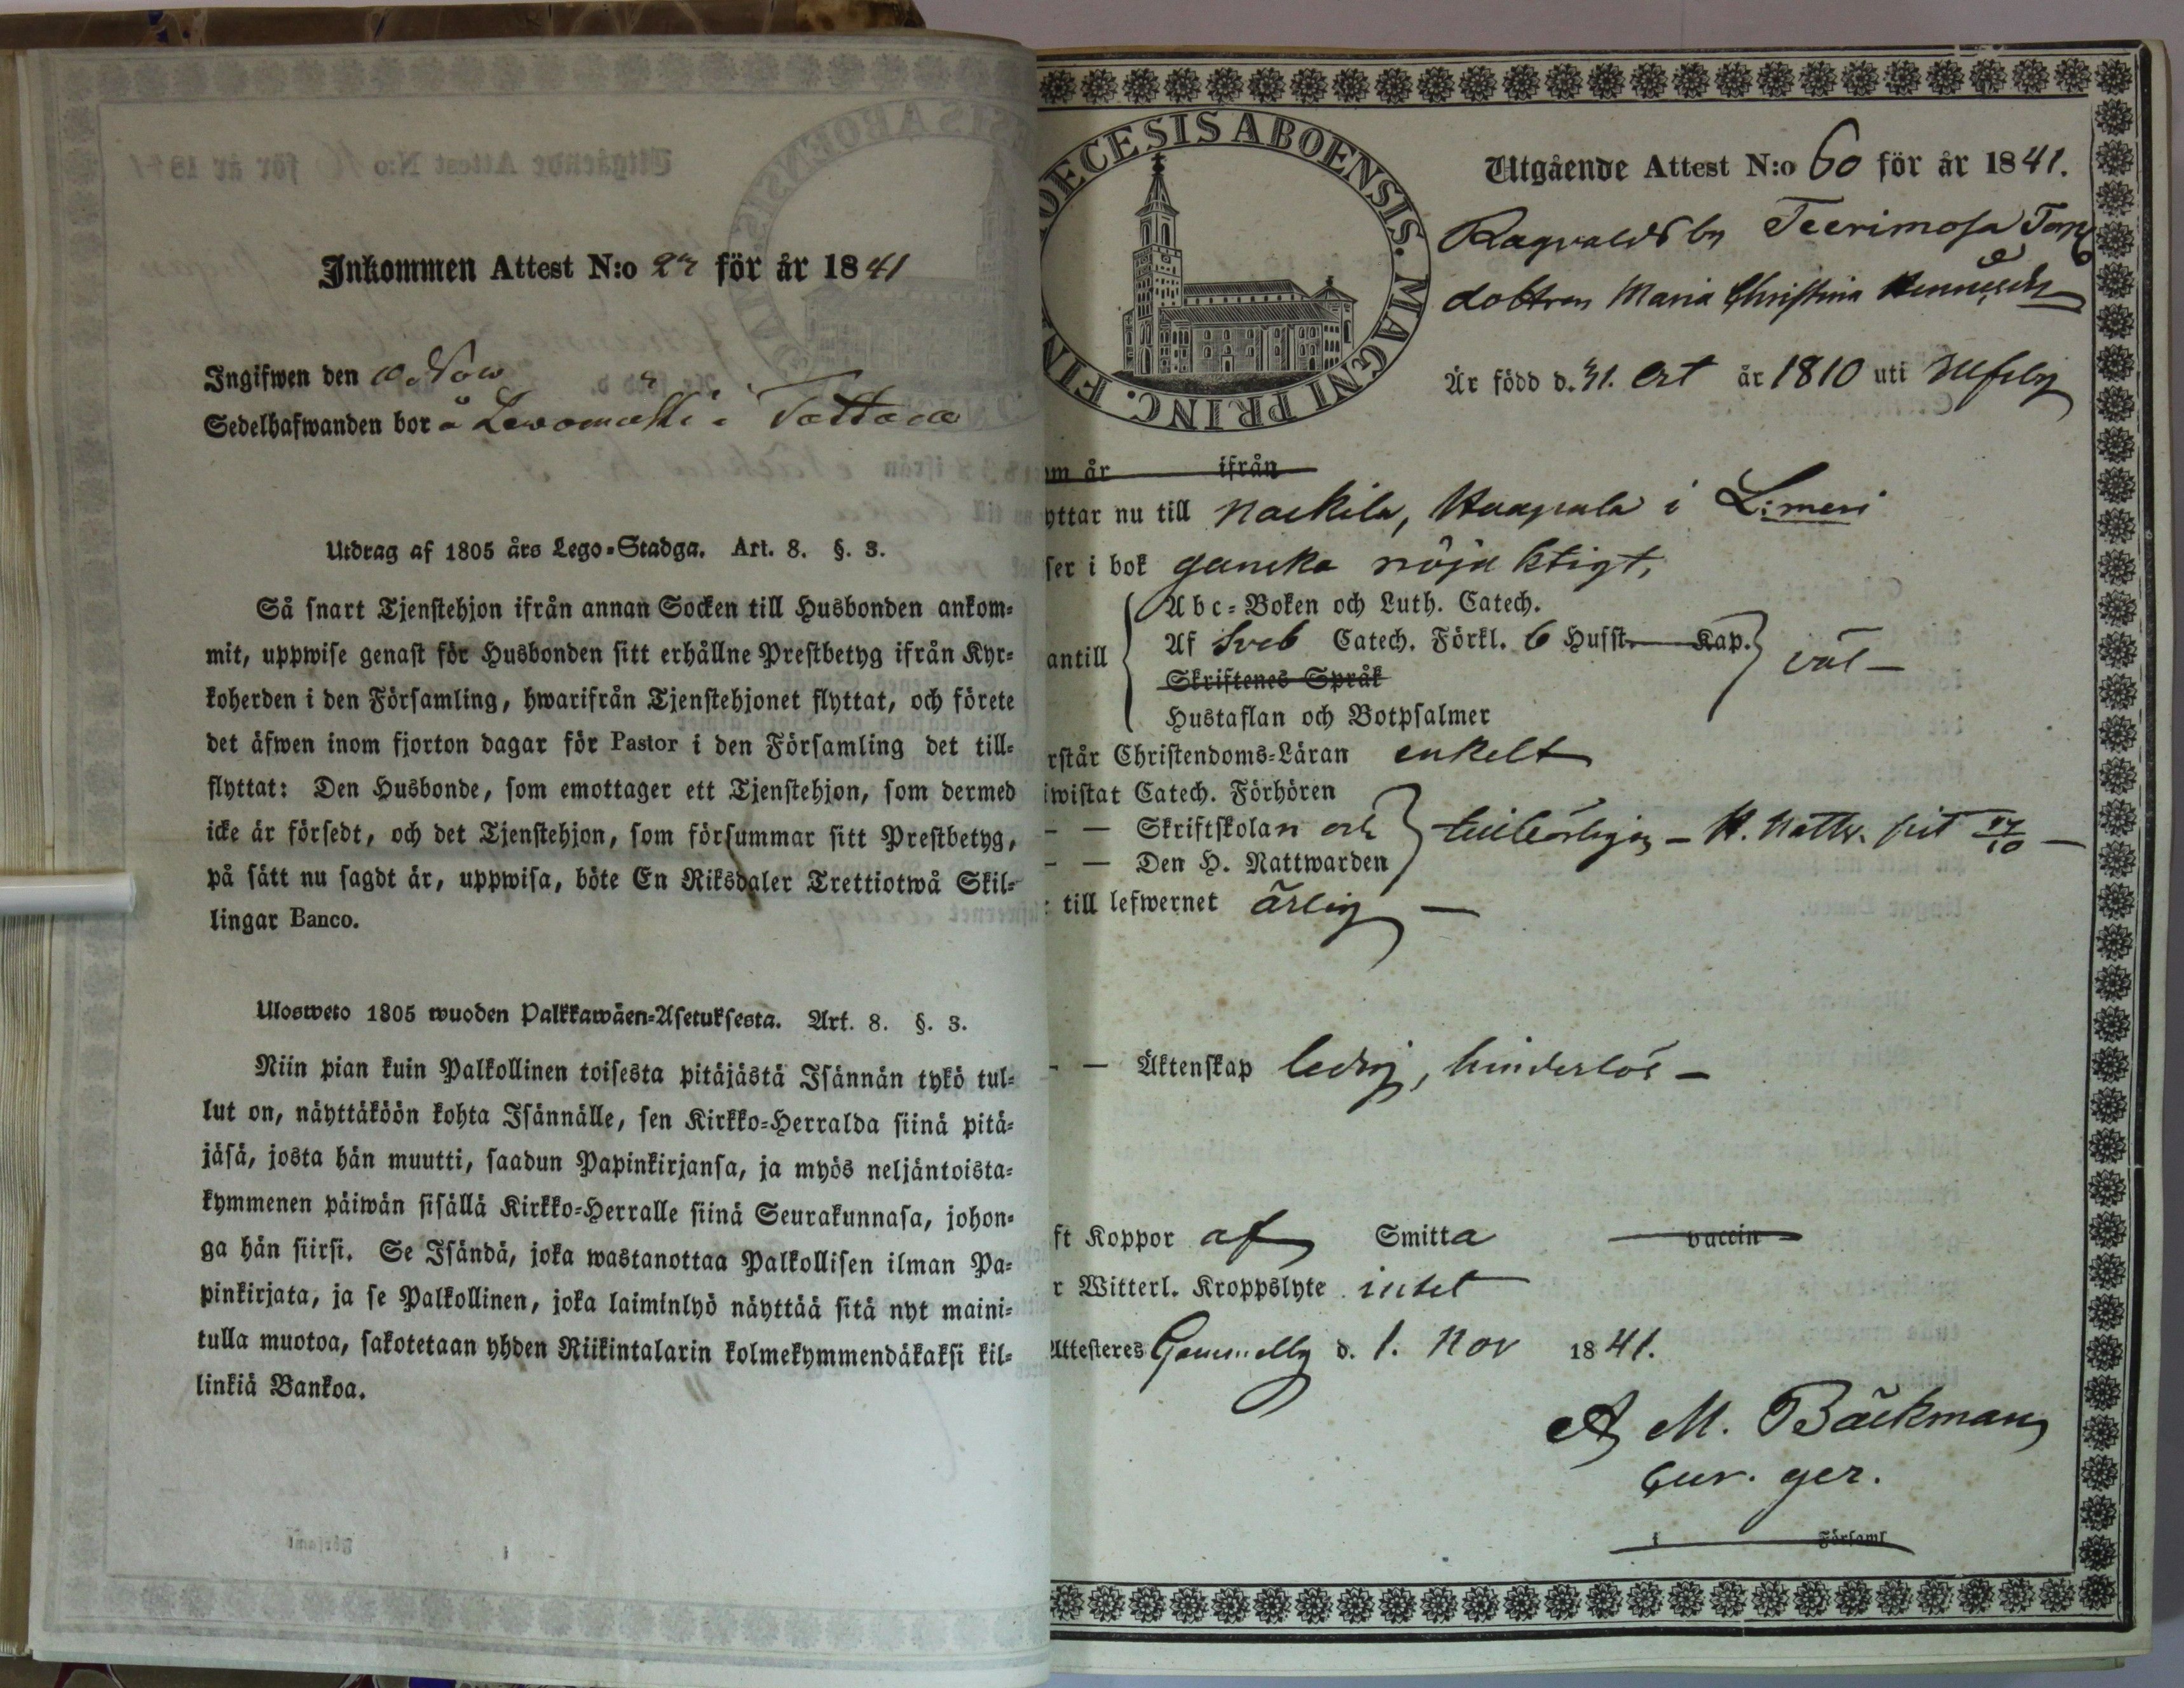 Inkommen Attest N:o för år 1841
Ingifwen den 10. Nov
Sedelhafwanden bor å i Tattara
Utdrag af 1805 års Lego-Stadga. Art. 8. §. 3.
Så snart Tjenstehjon ifrån annan Socken till Husbonden ankom-
mit, uppwise genast för Husbonden sitt erhållne Prestbetyg ifrån Kyr-
koherden i den Församling, hwarifrån Tjenstehjonet flyttat, och förete
det äfwen inom fjorton dagar för Pastor i den Församling det till-
flyttat: Den Husbonde, som emottager ett Tjenstehjon, som dermed
icke är försedt, och det Tjenstehjon, som försummar sitt Prestbetyg,
på sätt nu sagdt är, uppwisa, böte En Riksdaler Trettiotwå Skil-
lingar Banco.
Ulosweto 1805 wuoden Palkkawäen-Asetuksesta. Art. 8. §. 3.
Niin pian kuin Palkollinen toisesta pitäjästä Isännän tykö tul-
lut on, näyttäköön kohta Isännälle, sen Kirkko-Herralda siinä pitä-
jäsä, josta hän muutti, saadun Papinkirjansa, ja myös neljäntoista-
kymmenen päiwän sisällä Kirkko-Herralle siinä Seurakunnasa, johon-
ga hän siirsi. Se Isändä, joka wastanottaa Palkollisen ilman Pa-
pinkirjata, ja se Palkollinen, joka laiminlyö näyttää sitä nyt maini-
tulla muotoa, sakotetaan yhden Riikintalarin kolmekymmendäkaksi kil-
linkiä Bankoa.
DIOECESIS ABOENSIS. MAGNI PRINC. FIN
Utgående Attest N:o 60 för år 1841.
Ragvalds by Teerimosa Torp
dottren Maria Christina
Är född d. 31. Oct år 1810 uti Ulfsby
om år ifrån
yttar nu till Nackila, Haapala i L:meri
ser i bok ganska nöjaktigt,
Abc-Boken och Luth. Catech.
antill Af Sveb Catech. Förkl. 6 Husst. Kap. väl —
Skriftenes Språk
Hustaflan och Botpsalmer
rstår Christendoms-Läran enkelt
iwistat Catech. Förhören
— — Skriftskolan och tillbörligen — H. Nattv. sist 17/10 —
— — Den H. Nattwarden
: till lefwernet ärlig —
— — Äktenskap ledig, hinderlös —
ft Koppor af Smitta vaccin
r Witterl. Kroppslyte intet
Attesteres Gammelby d. 1. Nov 1841.
A M. Bäckman
Cur. ger.
i Församl